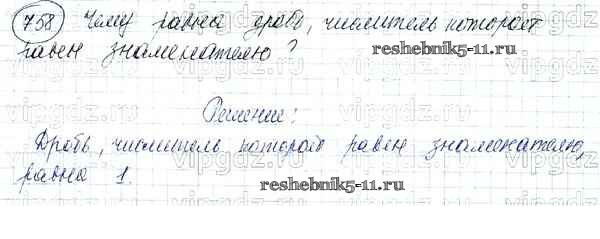 758 Чему равна дробь, числитель которой
равен знаменателю?
reshebnik5-11.ru
Решение:
Дробь, числитель которой равен знаменателю,
равна 1.
reshebnik5-11.ru
vipgdz.ru